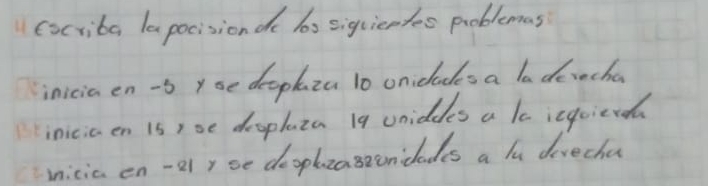 4 Escriba la pocision de los siguientes problemas:
A: inicia en -5 y se desplaza 10 unidades a la derecha
B: inicia en 15 y se desplaza 19 uniddes a la izquierda
C: inicia en -21 y se desplaza 32 unidades a la derecha